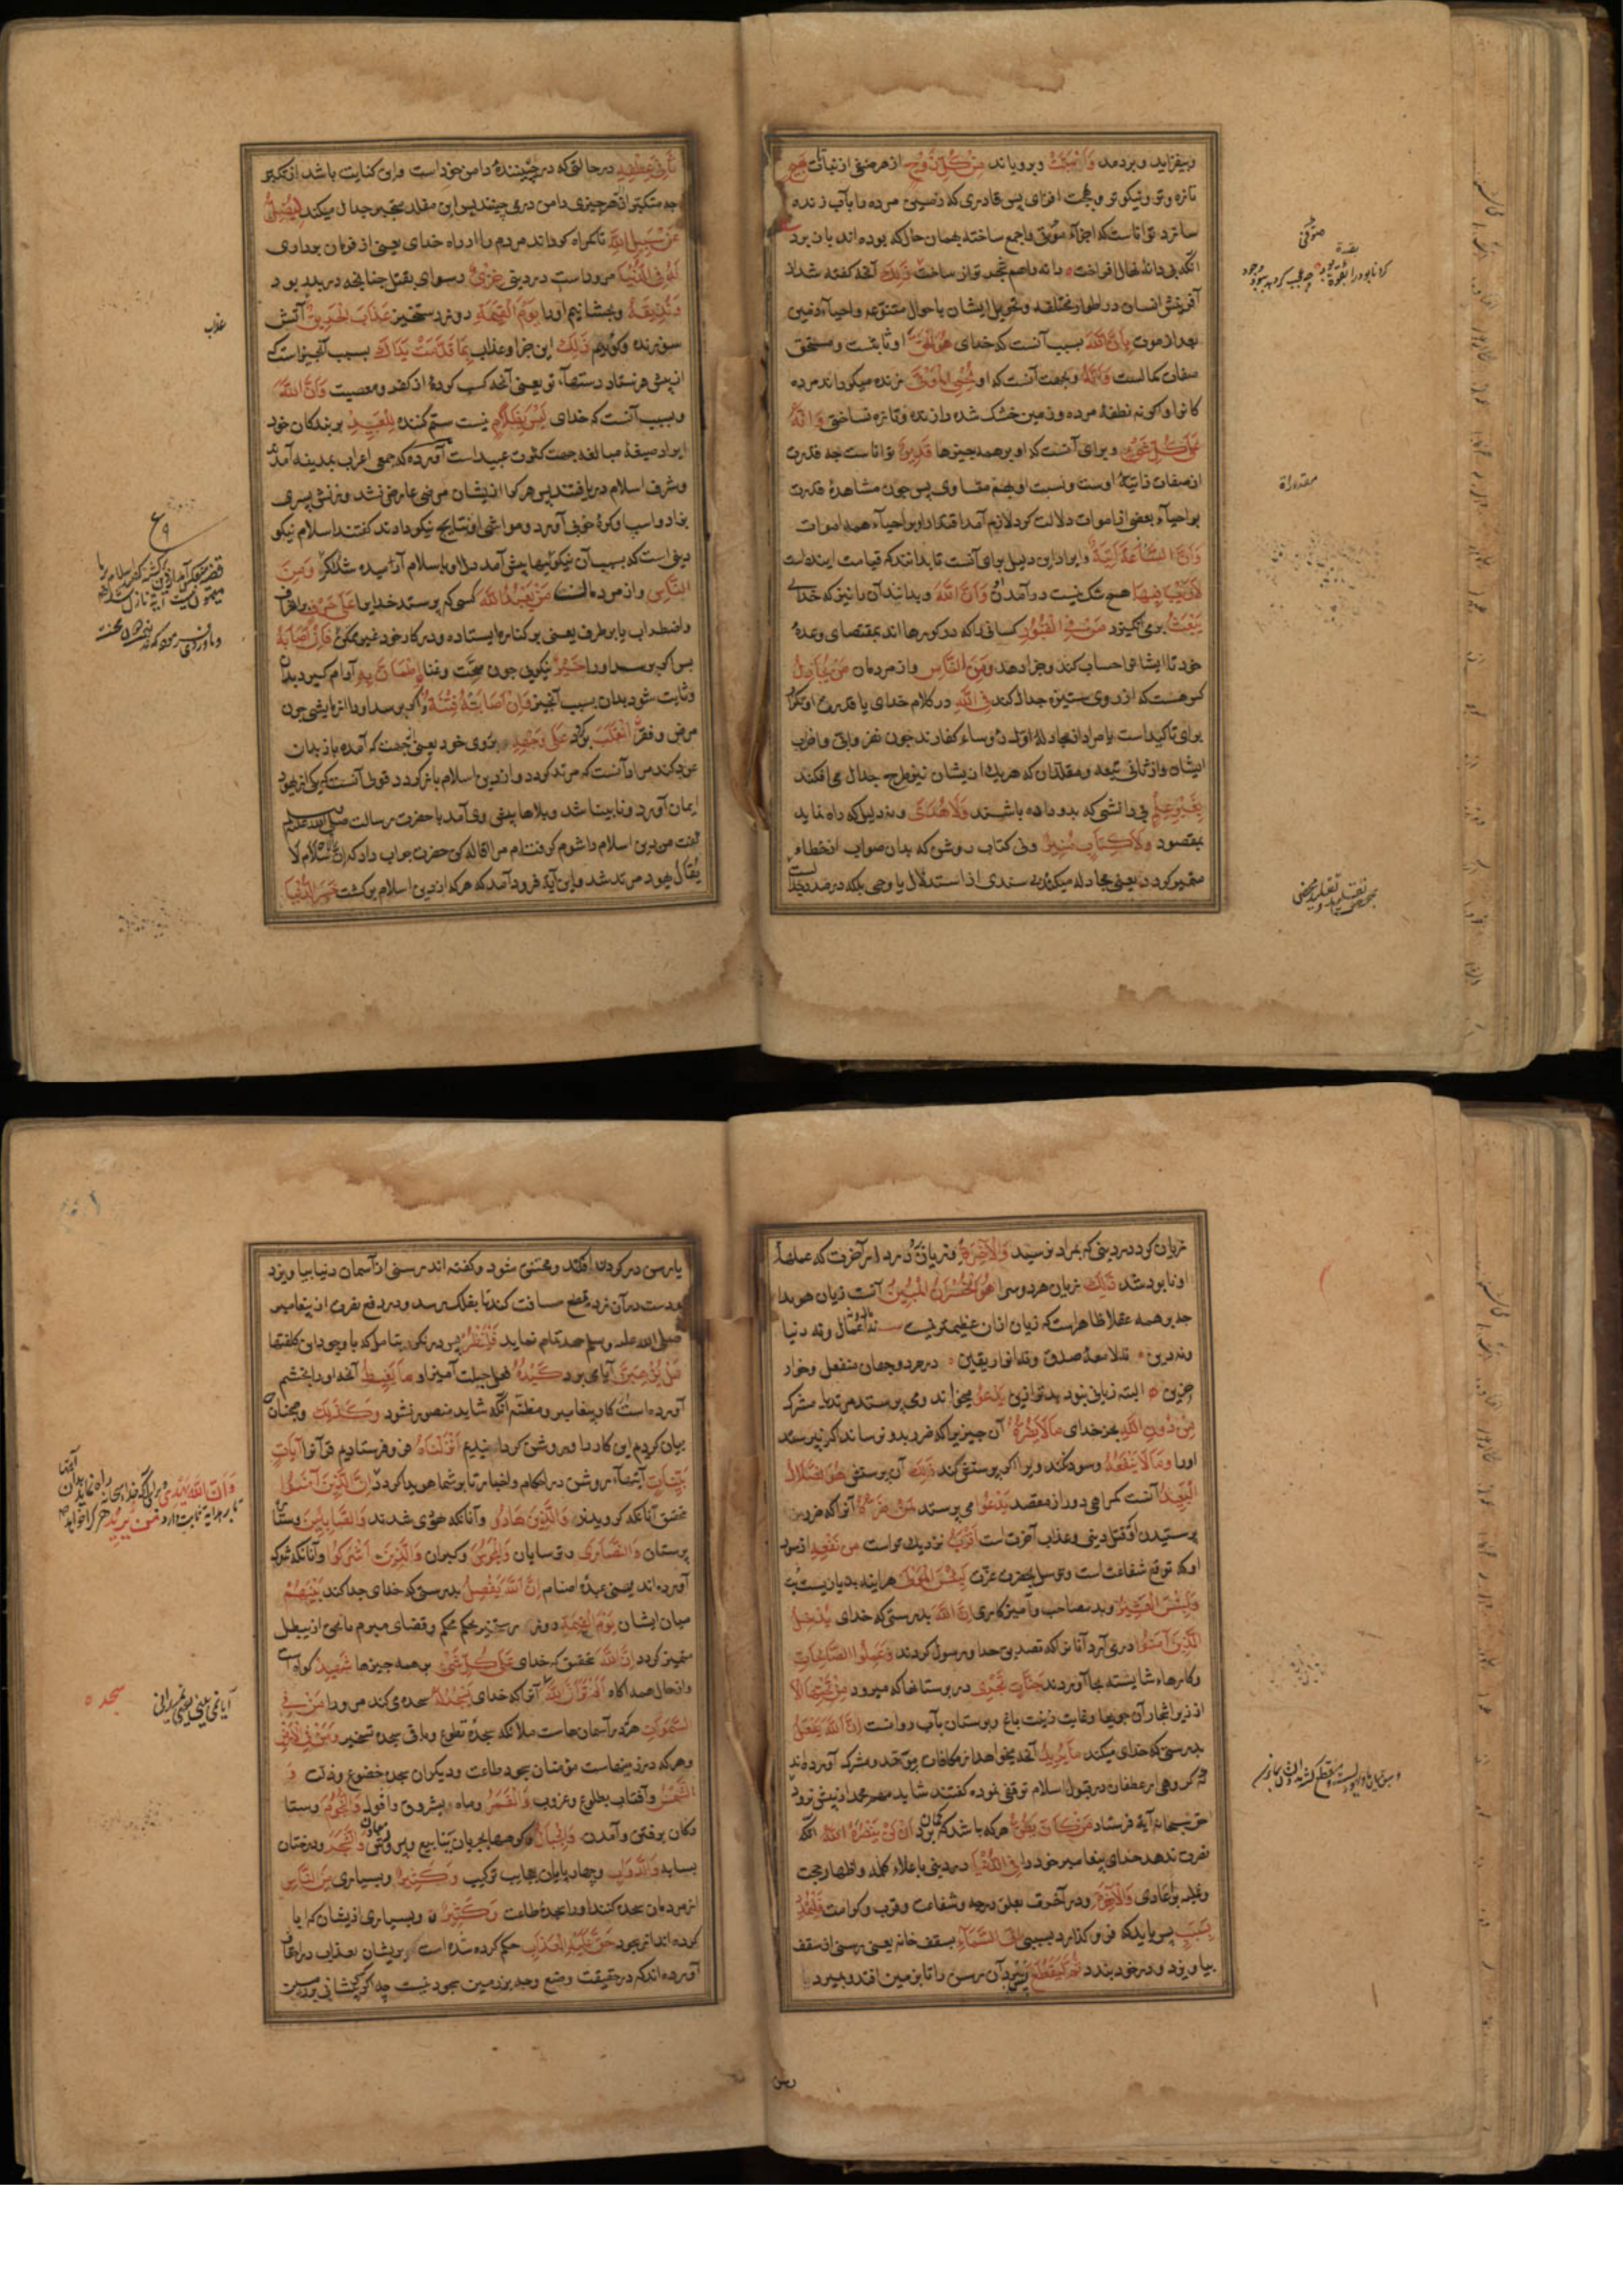 وبیفزاید وبردمد وَاَنْبَتَتْ وبرویاند مِنْ كُلِّ زَوْجٍ از هر صنفی از نباتات بَهیجٍ
تازه وتر ونیکو تو وبهجت افزای پس قادری که زمین مرده را بآب زنده
سازد تواناست که اجزاء موتی را جمع ساخته بهمان حال که بوده اند بازبرد
آنکه پی دانه نهال افراخت دانه هم شجر تواند ساخت ذٰلِكَ آنچه گفته شد از
آفرینش انسان در اطوار مختلفه وتحویل ایشان باحوال متنوعه واحیاء زمین
بعد از موت بِأَنَّ اللّٰهَ بسبب آنست که خدای هُوَ الْحَقُّ او ثابتست ومستحق
صفات کمالست وَاَنَّهُ وبجهت آنست که او يُحْيِي الْمَوْتٰى زنده میگرداند مرده
کانرا والا نطفهٔ مرده وزمین خشک شده را زنده وتازه نساختی وَاَنَّهُ
عَلٰى كُلِّ شَيْءٍ وبرای آنست که او بر همه چیزها قَدِيرٌ تواناست چه قدرت
از صفات ذاتیهٔ اوست ونسبت او بهمه متساوی پس چون مشاهدهٔ قدرت
بر احیاء بعضی از اموات دلالت کرد لازم آمد اقتدار او بر احیاء همه اموات
وَاَنَّ السَّاعَةَ اٰتِيَةٌ وایراد این دلیل برای آنست تا بدانند که قیامت اینده است
لَا رَيْبَ فِيهَا هیچ شک نیست در آمدن او وَاَنَّ اللّٰهَ وبدانند آن را نیز که خدای
يَبْعَثُ برمی انگیزد مَنْ فِي الْقُبُورِ کسانی را که در گورها اند بمقتضای وعدهٔ
خود تا ایشان را حساب کند وجزا دهد وَمِنَ النَّاسِ واز مردمان مَنْ يُجَادِلُ
کس هست که از روی ستیزه جدال کند فِي اللّٰهِ در کلام خدای یا قدرت او
برای تاکید است یا مراد از مجادلهٔ اول رؤساء کفارند چون نضر وابی واضراب
ایشان واز ثانی تبعه ومقلدان که هر یک از ایشان نیز طرح جدال می افکند
بِغَيْرِ عِلْمٍ بی دانشی که بدو داده باشند وَلَا هُدًى ونه دلیلی که راه نماید
بمقصود وَلَا كِتَابٍ مُنِيرٍ ونی کتاب روشن که بدان صواب از خطا
متمیز گردد یعنی مجادله میکند بی سندی از استدلال یا وحی بلکه در صدد
ثَانِيَ عِطْفِهِ در حالتی که در چیننده دامن خود است واین کنایت باشد از تکبر
چه متکبر از هر چیزی دامن در می چیند پس این مقلد متحیر جدال میکند لِيُضِلَّ
عَنْ سَبِيلِ اللّٰهِ تا گمراه گرداند مردم را از راه خدای یعنی از فرمان برداری
لَهُ فِي الدُّنْيَا مرو راست در دنیی خِزْيٌ رسوای بقتل چنانچه در بدر بود
وَنُذِيقُهُ وبچشانیم او را يَوْمَ الْقِيٰمَةِ روز رستخیز عَذَابَ الْحَرِيقِ آتش
سوزنده وگوئیم ذٰلِكَ این جزا وعذاب بِمَا قَدَّمَتْ يَدَاكَ بسبب آنچیزاست که
از پیش فرستاد دستهاء تو یعنی آنچه کسب کردهٔ از کفر ومعصیت وَاَنَّ اللّٰهَ
وبسبب آنست که خدای لَيْسَ بِظَلَّامٍ نیست ستم کننده لِلْعَبِيدِ بر بندگان خود
ایراد صیغهٔ مبالغه جهت کثرت عبید است آورده که جمعی اعراب بمدینه آمدند
وشرف اسلام دریافتند پس هر کرا از ایشان مرضی عارض نشد وزنش پسری
بزاد واسپ او کرهٔ خوب آورد ومواشی او نتایج نیکو دادند گفتند اسلام نیکو
دینی است که بسبب آن نیکوئیها پیش آمد دل او باسلام آرمیده شد وَمِنَ
النَّاسِ واز مردمان است مَنْ يَعْبُدُ اللّٰهَ کسی که پرستد خدایرا عَلٰى حَرْفٍ
واضطراب یا بر طرف یعنی بر کناره ایستاده ودر کار خود غیر متمکن فَاِنْ اَصَابَهُ
پس اگر برسد او را خَيْرٌ نیکویی چون صحت وغنا اِطْمَاَنَّ بِهِ آرام گیرد بدان
وثابت شود بدان بسبب آنچیز وَاِنْ اَصَابَتْهُ فِتْنَةٌ واگر برسد او را آزمایشی چون
مرض وفقر انْقَلَبَ برگردد عَلٰى وَجْهِهِ بر روی خود یعنی بجهت که آمده باز بدان
عود کند مراد آنست که مرتد گردد واز دین اسلام باز گردد وقولی آنست که یکی از یهود
ایمان آورد ونابینا شد وبلاها پیش وی آمد با حضرت رسالت صلی الله علیه وسلم
گفت من دین اسلام را شوم گرفته ام مرا اقاله کن حضرت جواب داد که ان الاسلام لا
یُقال یهود مرتد شد واین آیة فرود آمد که هر که از دین اسلام برگشت خَسِرَ الدُّنْيَا
عذاب
مقدورات
زیان کرد در دینی که بمراد نرسید وَالْاٰخِرَةَ وزیان دارد در آخرت که عملهاء
او نابود شد ذٰلِكَ زیان هر دو سرا هُوَ الْخُسْرَانُ الْمُبِينُ آنست زیان هویدا
چه بر همه عقلا ظاهراست که زیان ازان عظیمتر نیست نه اعمال ونه دنیا
ونه دین نه لامعهٔ صدق ونه انوار یقین در هر دو جهان منفعل وخوار
وحزین البته زیانی نبود بدتر ازین يَدْعُو میخواند ومی پرستد مرتد یا مشرک
مِنْ دُونِ اللّٰهِ بجز خدای مَا لَا يَضُرُّهُ آن چیز را که ضرر بدو نرساند اگر نپرستد
او را وَمَا لَا يَنْفَعُهُ وسود نکند ویرا اگر پرستش کند ذٰلِكَ آن پرستش هُوَ الضَّلَالُ
الْبَعِيدُ آنست گمراهی دور از مقصد يَدْعُوا می پرستد لَمَنْ ضَرُّهُ آنرا که ضرر
پرستیدن او قتل دینی وعذاب آخرت است اَقْرَبُ نزدیک تر است مِنْ نَفْعِهِ از سود
او که توقع شفاعت است وتوسل بحضرت عزت لَبِئْسَ الْمَوْلٰى هر آینه بد یاریست بت
وَلَبِئْسَ الْعَشِيرُ وبد مصاحب وآمیزگاری اِنَّ اللّٰهَ بدرستی که خدای يُدْخِلُ
الَّذِينَ اٰمَنُوا در می آرد آنانرا که تصدیق خدا ورسول کردند وَعَمِلُوا الصَّالِحَاتِ
وکارهاء شایسته بجا آوردند جَنَّاتٍ تَجْرِي در بوستانها که میرود مِنْ تَحْتِهَا الْاَنْهَارُ
از زیر اشجار آن جویها وغایت زینت باغ وبوستان بآب روانست اِنَّ اللّٰهَ يَفْعَلُ
بدرستی که خدای میکند مَا يُرِيدُ آنچه میخواهد از مکافات موحد ومشرک آورده اند
که گروهی از غطفان در قبول اسلام توقفی نموده گفتند شاید مهم محمد از پیش نرود
حق سبحانه آیة فرستاد مَنْ كَانَ يَظُنُّ هر که باشد که گمان برد اَنْ لَنْ يَنْصُرَهُ اللّٰهُ آنکه
نصرت ندهد خدای پیغامبر خود را فِي الدُّنْيَا در دینی باعلاء کلمه واظهار حجت
وغلبه بر اعادی وَالْاٰخِرَةِ ودر آخرت بعلو درجه وشفاعت وقرب وکرامت فَلْيَمْدُدْ
بِسَبَبٍ پس باید که فرو گذارد بسببی اِلَى السَّمَاءِ بسقف خانه یعنی رسنی از سقف
بیاویزد ودر خود بندد ثُمَّ لْيَقْطَعْ پس ببرد آن رسن را تا بزمین افتد وبمیرد
رسن
یا رسی در گردن افکند ومختنق شود وگفته اند رسنی از آسمان دنیا بیاویزد
ودست در آن زده قطع مسافت کند تا بفلک برسد ودر دفع نصرت از پیغامبر
صلی الله علیه وسلم جهد تمام نماید فَلْيَنْظُرْ پس درنگرد بتامل که با وجود این کلفتها
هَلْ يُذْهِبَنَّ آیا می برد كَيْدُهُ حیلت آمیز او مَا يَغِيظُ آنچه او را بخشم
آورده است از کار پیغامبر ومظنه آنکه شاید منصور نشود وَكَذٰلِكَ وهمچنان
بیان کردیم این کار را وروشن گردانیدیم اَنْزَلْنَاهُ فرو فرستادیم قرآنرا اٰيَاتٍ
بَيِّنَاتٍ آیتهاء روشن در احکام واخبار تا بر شما هویدا گردد اِنَّ الَّذِينَ اٰمَنُوا
بتحقیق آنانکه گرویدند وَالَّذِينَ هَادُوا وآنانکه یهودی شدند وَالصَّابِئِينَ وستاره
پرستان وَالنَّصَارٰى وترسایان وَالْمَجُوسَ وگبران وَالَّذِينَ اَشْرَكُوا وآنانکه شرک
آورده اند یعنی عبدهٔ اصنام اِنَّ اللّٰهَ يَفْصِلُ بدرستی که خدای جدا کند بَيْنَهُمْ
میان ایشان يَوْمَ الْقِيٰمَةِ روز رستخیز بحکم محکم وقضای مبرم تا محق از مبطل
متمیز گردد اِنَّ اللّٰهَ بتحقیق که خدای عَلٰى كُلِّ شَيْءٍ بر همه چیزها شَهِيدٌ گواه است
واز حال همه آگاه اَلَمْ تَرَ اَنَّ اللّٰهَ آنرا که خدای يَسْجُدُ لَهُ سجده می کند مرورا مَنْ فِي
السَّمٰوَاتِ هر که در آسمانهاست ملائکه سجدهٔ تطوع وباقی سجده تسخیر وَمَنْ فِي الْاَرْضِ
وهر که در زمینهاست مؤمنان بسجود طاعت ودیگران بسجده خضوع وذلت وَ
الشَّمْسُ وآفتاب بطلوع وغروب وَالْقَمَرُ وماه بشروق وافول وَالنُّجُومُ وستا
رگان برفتن وآمدن وَالْجِبَالُ وکوهها بجریان ینابیع وَالشَّجَرُ ودرختان
بسایه وَالدَّوَابُّ وچهارپایان بعجایب ترکیب وَكَثِيرٌ وبسیاری مِنَ النَّاسِ
از مردمان سجده کنند او را سجدهٔ طاعت وَكَثِيرٌ وبسیاری از ایشان که ابا
کرده اند از سجود حَقَّ عَلَيْهِ الْعَذَابُ حکم کرده شده است بر ایشان بعذاب
آورده اند که در حقیقت وضع وجه بر زمین سجود نیست چه اگر پیشانی بر زمین
وَاَنَّ اللّٰهَ يَهْدِي
مَنْ يُرِيدُ هر کرا خواهد
سجده